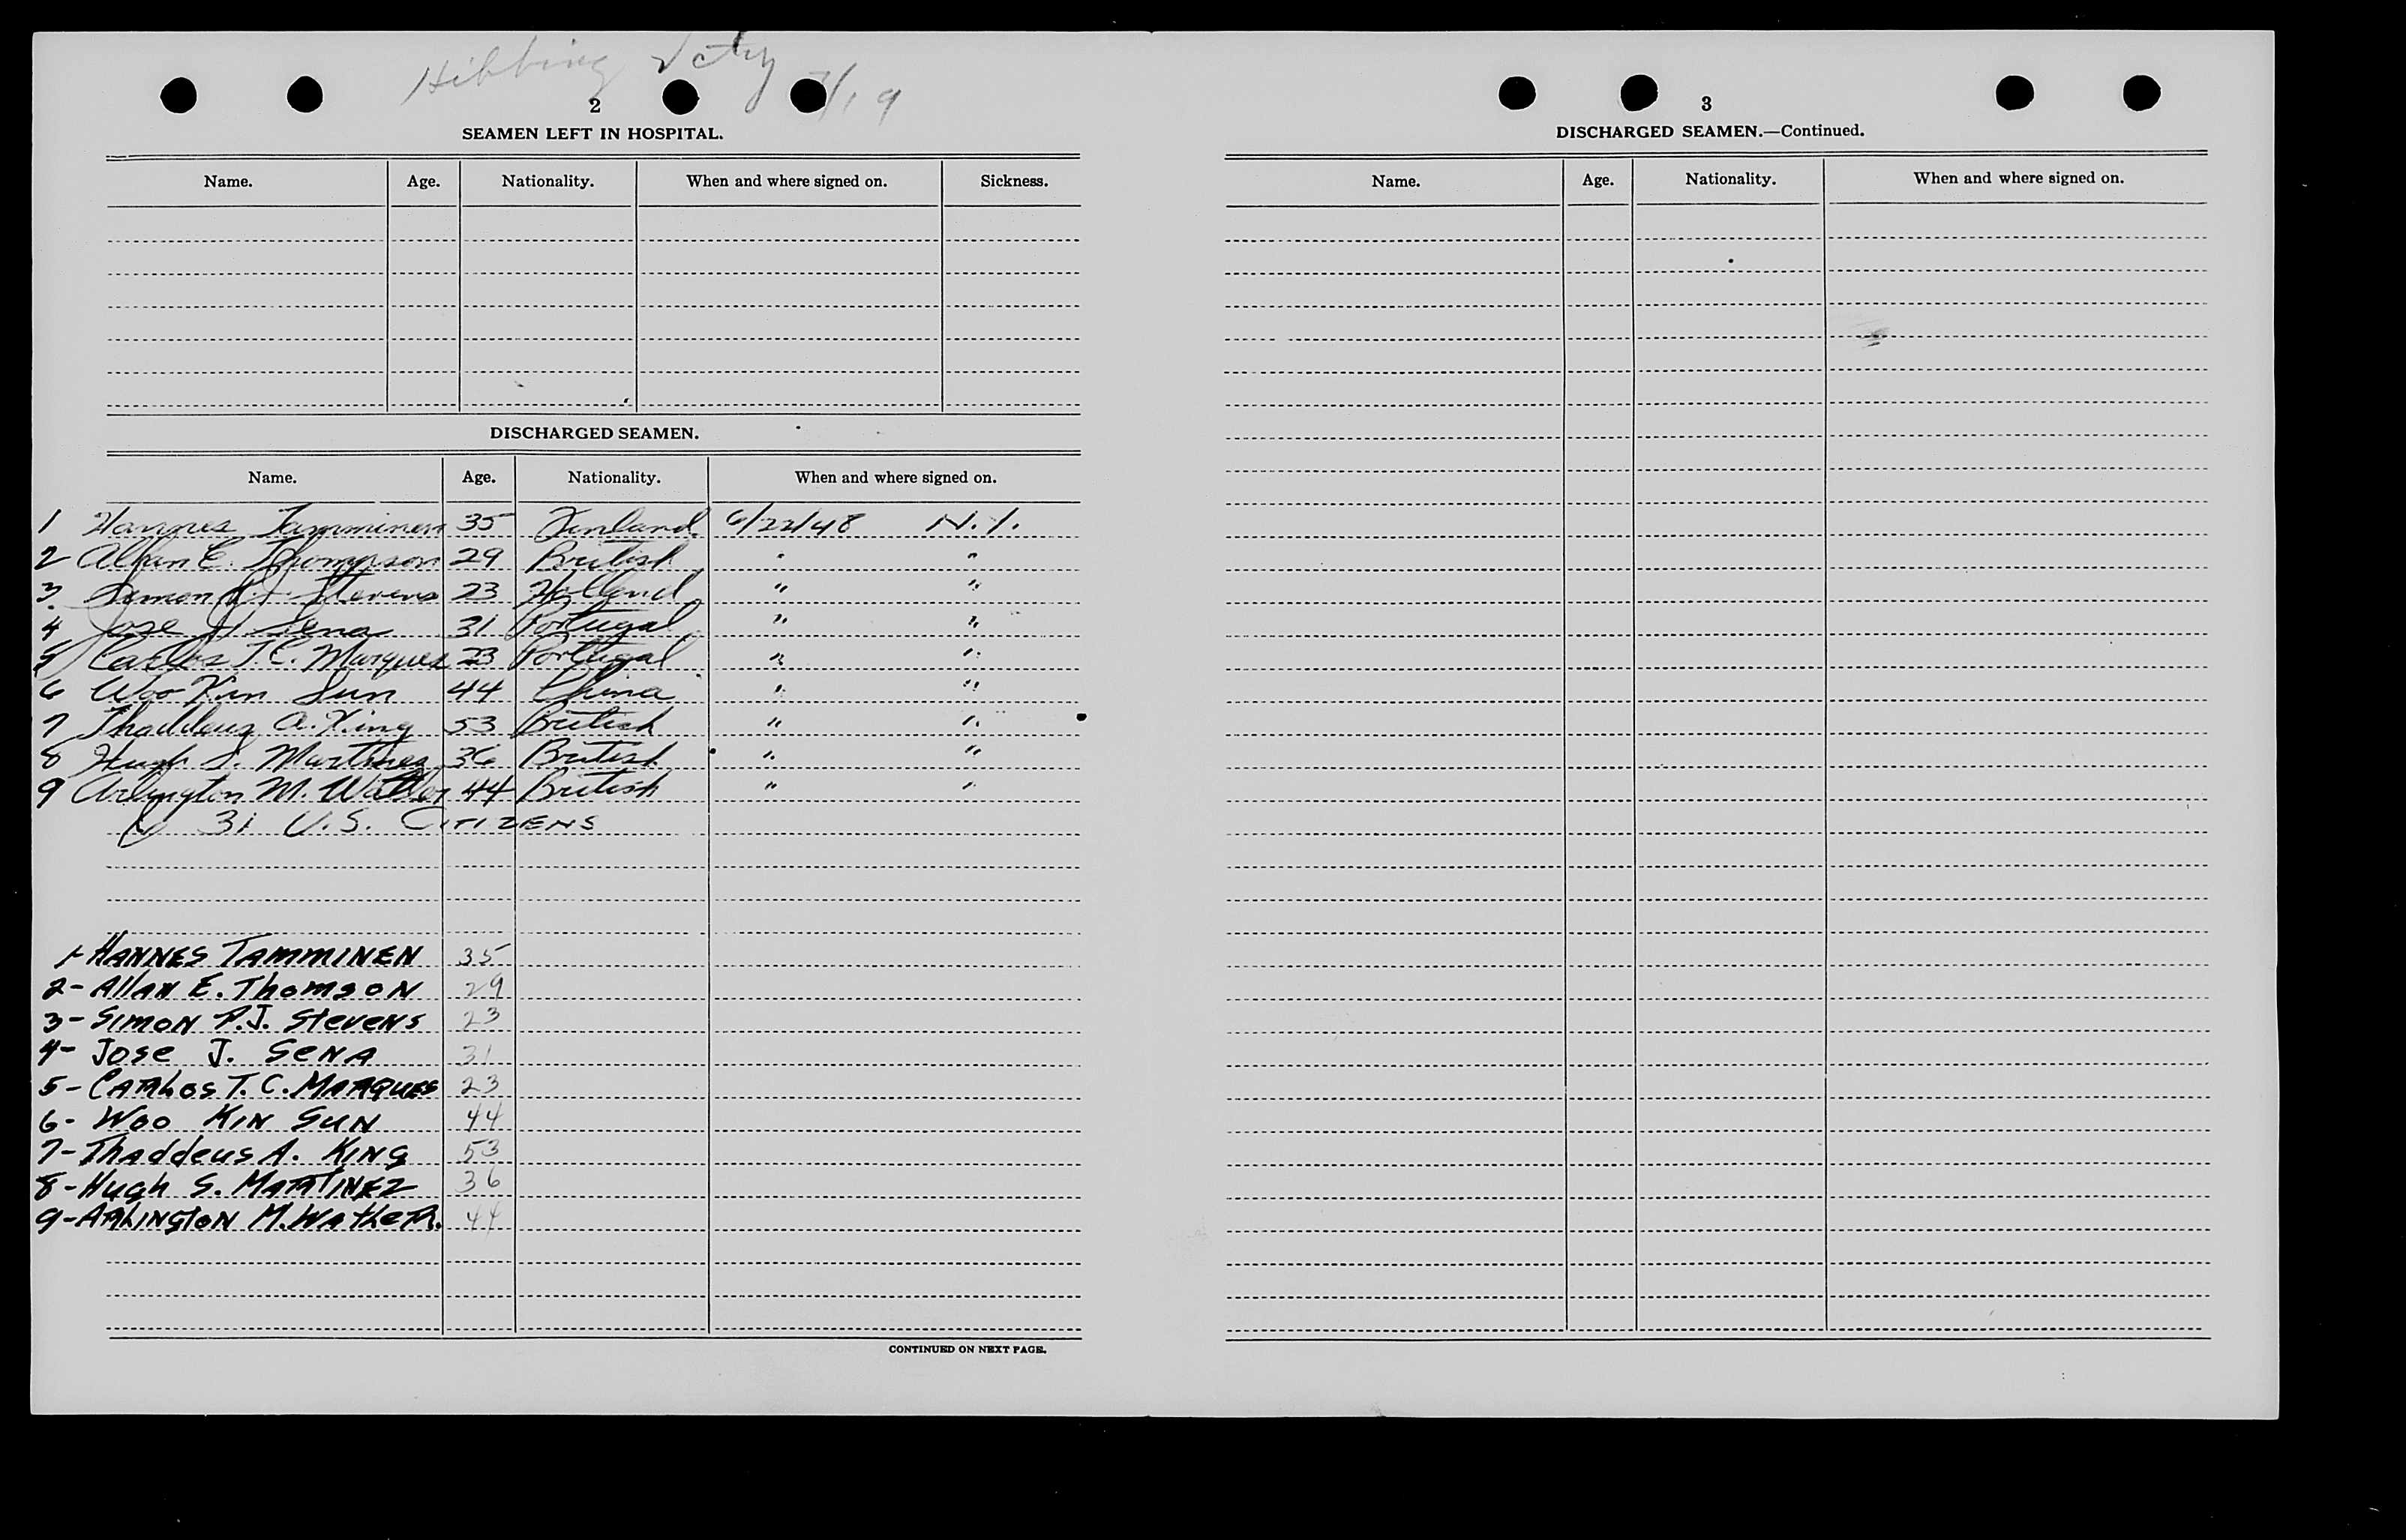 Hibbing Vcty 7/19
2
SEAMEN LEFT IN HOSPITAL.
Name. Age. Nationality. When and where signed on. Sickness.
DISCHARGED SEAMEN.
Name. Age. Nationality. When and where signed on.
1 Hannes Tamminen 35 Finland 6/22/48 N.Y.
2 Allan E. Thompson 29 British " "
3. Simon P.J. Stevens 23 Holland " "
4 Jose J. Sena 31 Portugal " "
5 Carlos T.C. Marques 23 Portugal " "
6 Woo Kin Sun 44 China " "
7 Thaddeus A. King 53 British " "
8 Hugh S. Martinez 36 British " "
9 Arlington M. Watler 44 British " "
31 U.S. CITIZENS
1-HANNES TAMMINEN 35
2-Allan E. Thomson 29
3-Simon P.J. Stevens 23
4-Jose J. Sena 31
5-CARLOS T.C. MARQUES 23
6-Woo KIN SUN 44
7-Thaddeus A. KING 53
8-Hugh S. MARTINEZ 36
9-ARLINGTON M. WATLER. 44
CONTINUED ON NEXT PAGE.
3
DISCHARGED SEAMEN.—Continued.
Name. Age. Nationality. When and where signed on.